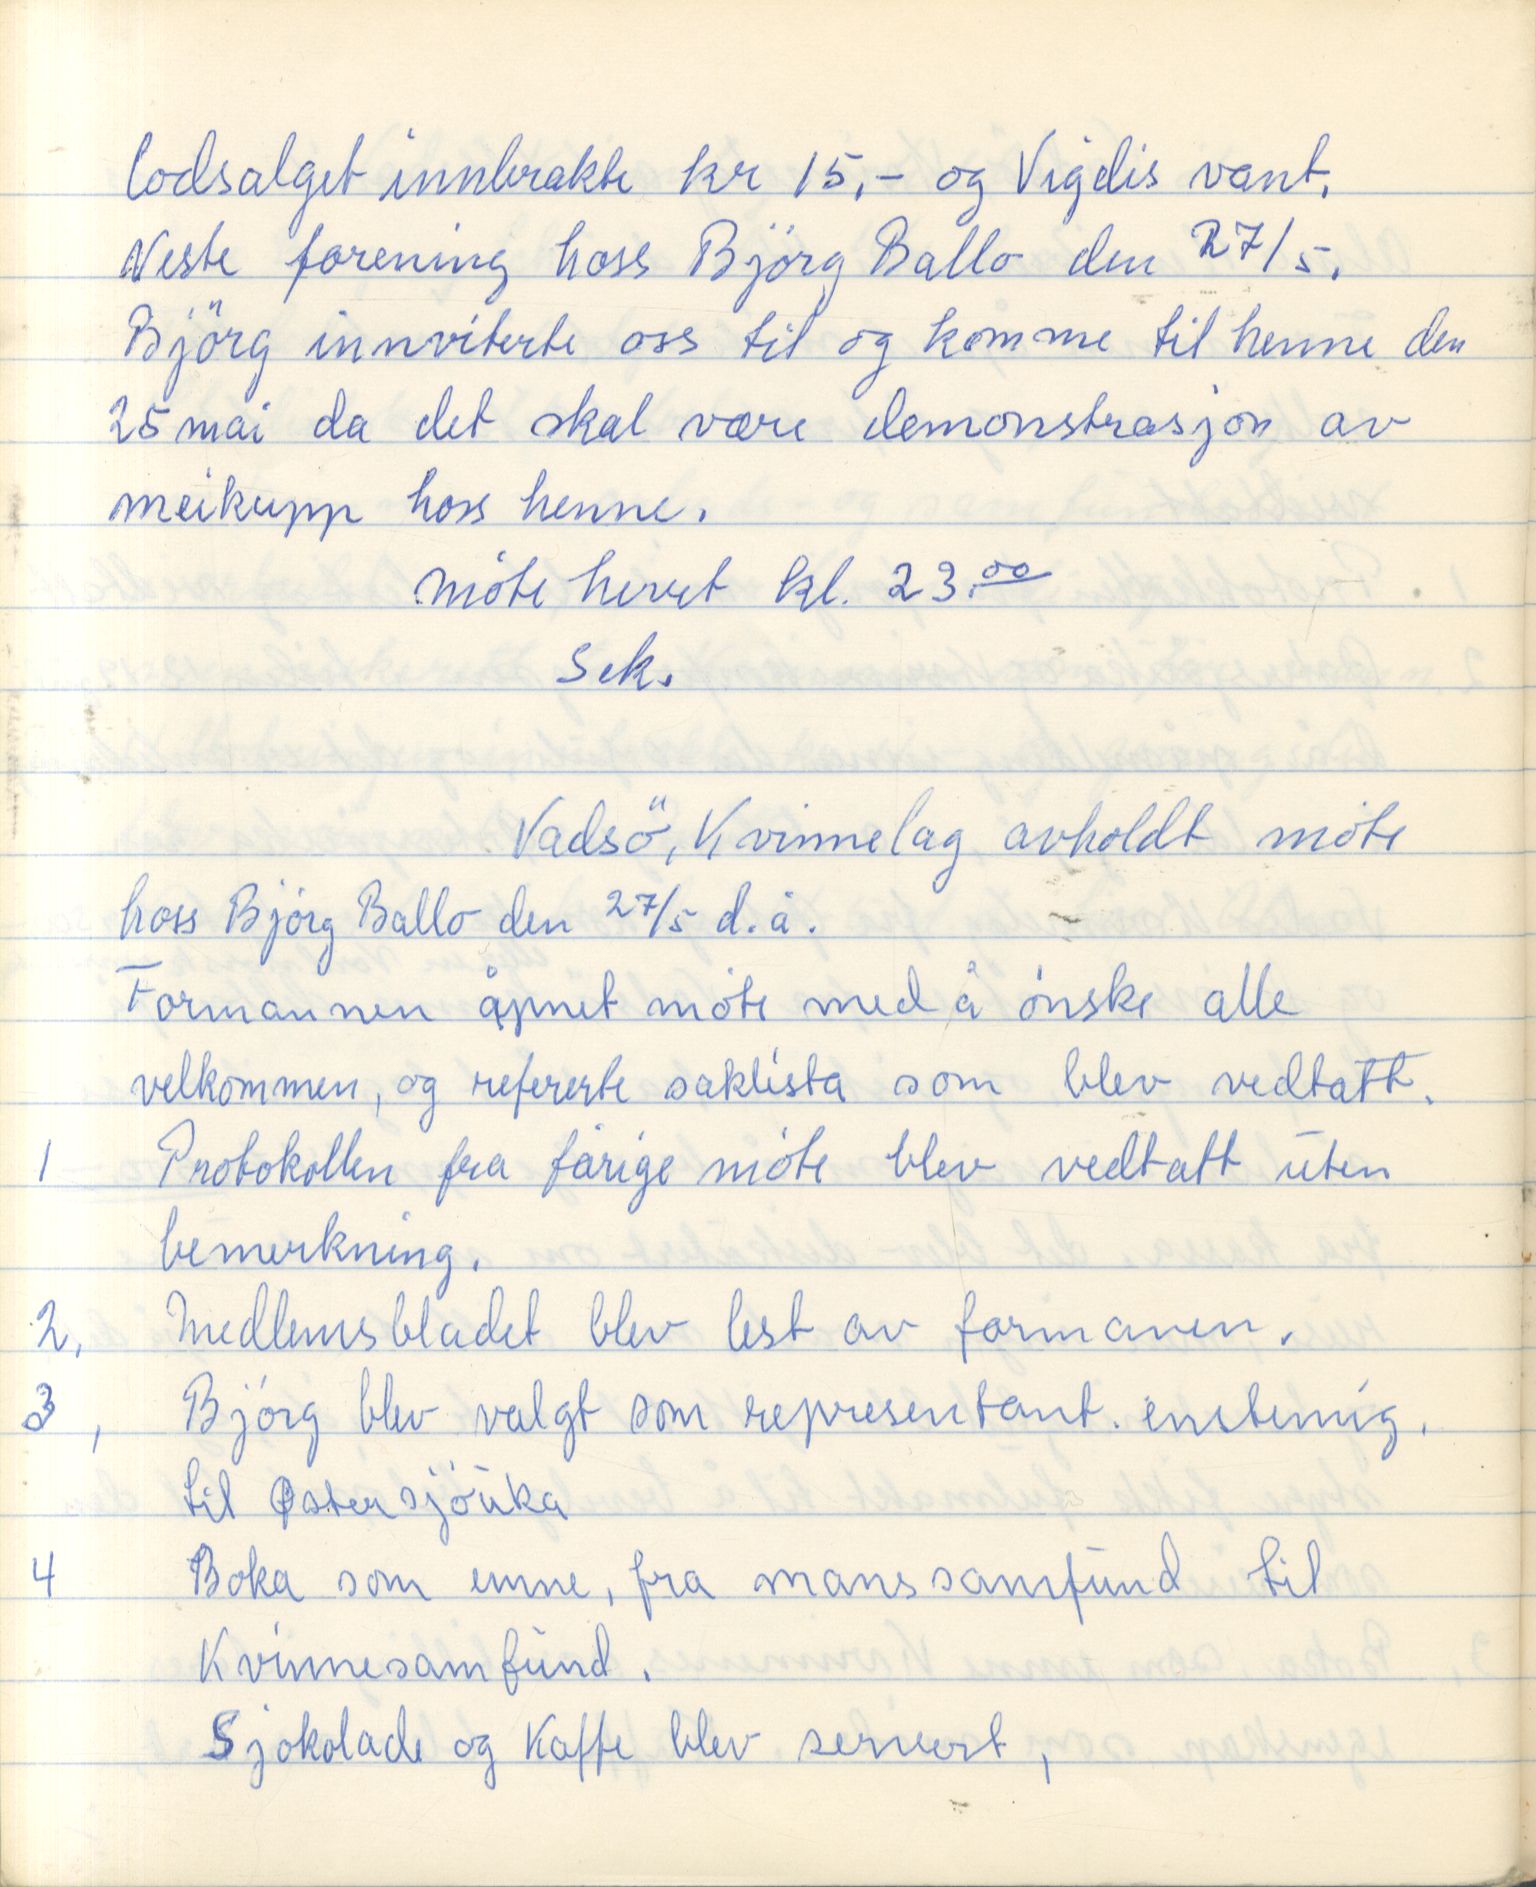 lodsalget innbrakte kr 15,- og Vigdis vant.
Neste forening hoss Björg Ballo den 27/5.
Björg innviterte oss til og komme til henne den
25 mai da det skal være demonstrasjon av
meikupp hoss henne.
möte hevet kl. 23.00
Sek.
Vadsö, Kvinnelag avholdt möte
hoss Björg Ballo den 27/5 d.å.
Formannen åpnet möte med å önske alle
velkommen, og refererte saklista som blev vedtatt.
1 Protokollen fra fårige möte blev vedtatt uten
bemerkning.
2. Medlemsbladet blev lest av formanen.
3, Björg blev valgt som representant. enstemig.
til Østersjöuka
4 Boka som emne, fra manssamfund til
Kvinnesamfund.
Sjokolade og Kaffe blev servert,